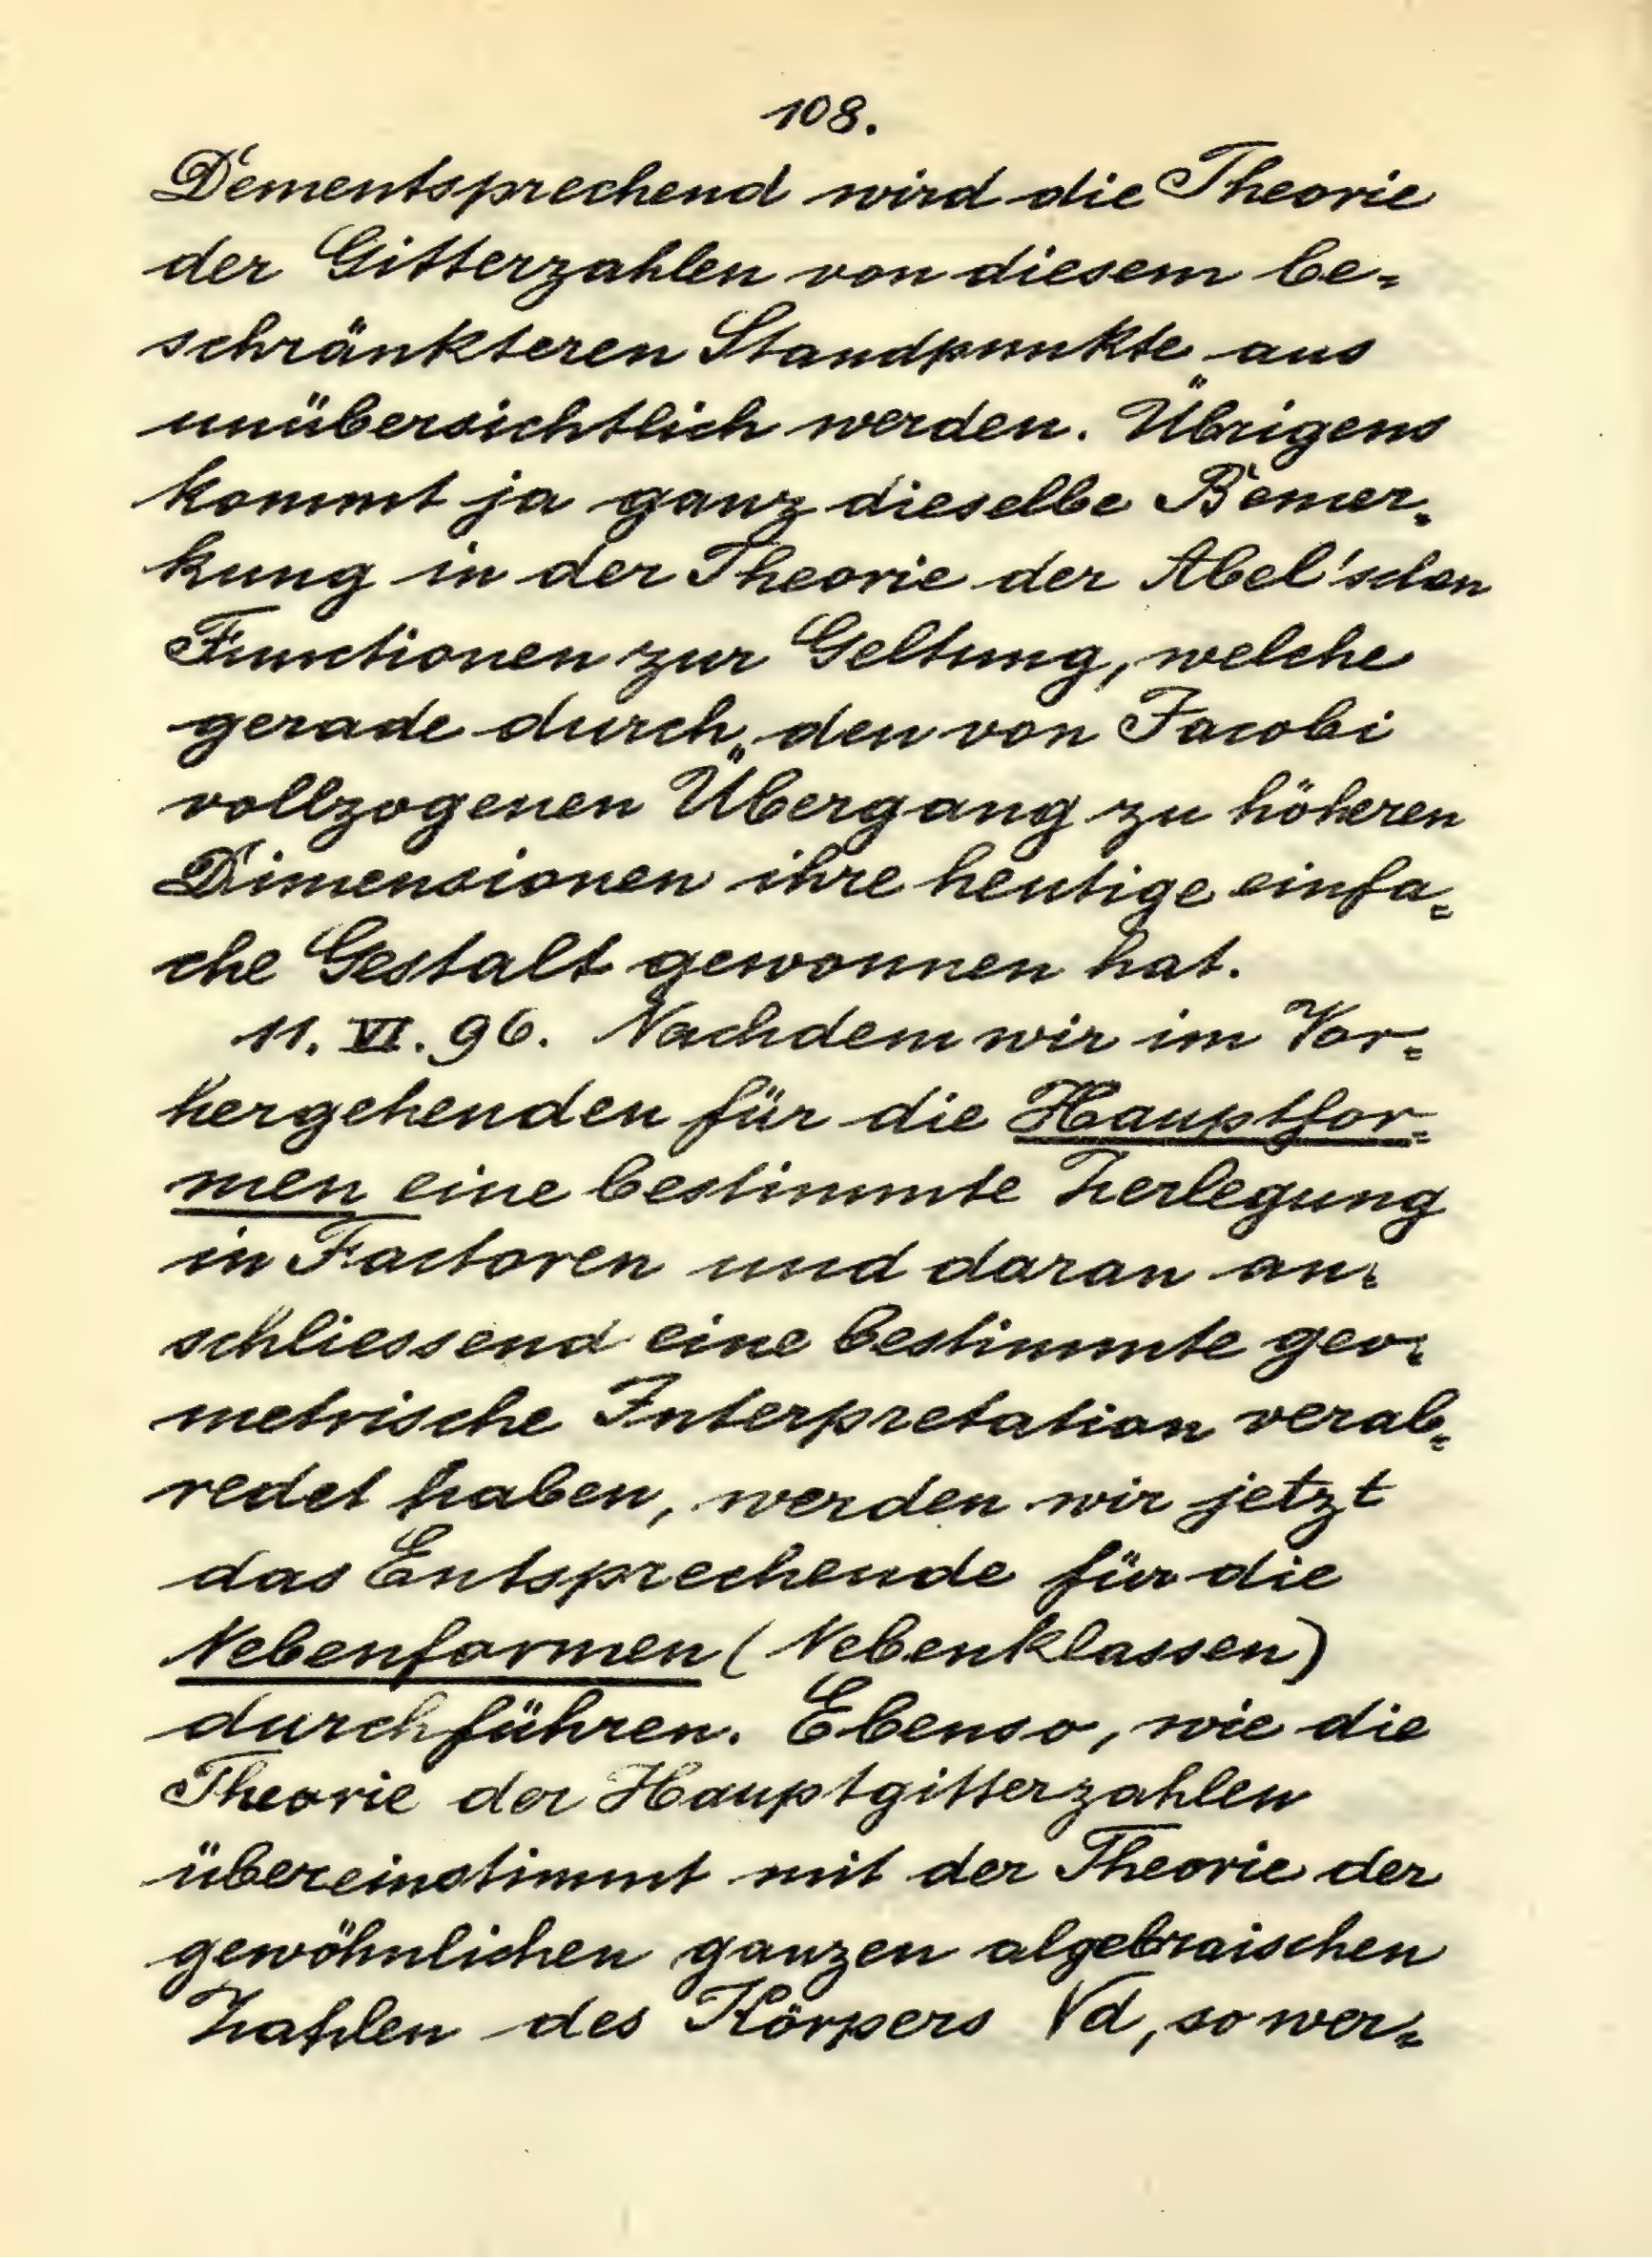 108.
Dementsprechend wird die Theorie
der Gitterzahlen von diesem be=
schränkteren Standpunkte aus
unübersichtlich werden. Übrigens
kommt ja ganz dieselbe Bemer=
kung in der Theorie der Abel'schen
Functionen zur Geltung, welche
gerade durch den von Jacobi
vollzogenen Übergang zu höheren
Dimensionen ihre heutige einfa=
che Gestalt gewonnen hat.
11. VI. 96. Nachdem wir im Vor=
hergehenden für die Hauptfor=
men eine bestimmte Zerlegung
in Factoren und daran an=
schliessend eine bestimmte geo=
metrische Interpretation verab=
redet haben, werden wir jetzt
das Entsprechende für die
Nebenformen (Nebenklassen)
durchführen. Ebenso, wie die
Theorie der Hauptgitterzahlen
übereinstimmt mit der Theorie der
gewöhnlichen ganzen algebraischen
Zahlen des Körpers √d, so wer=